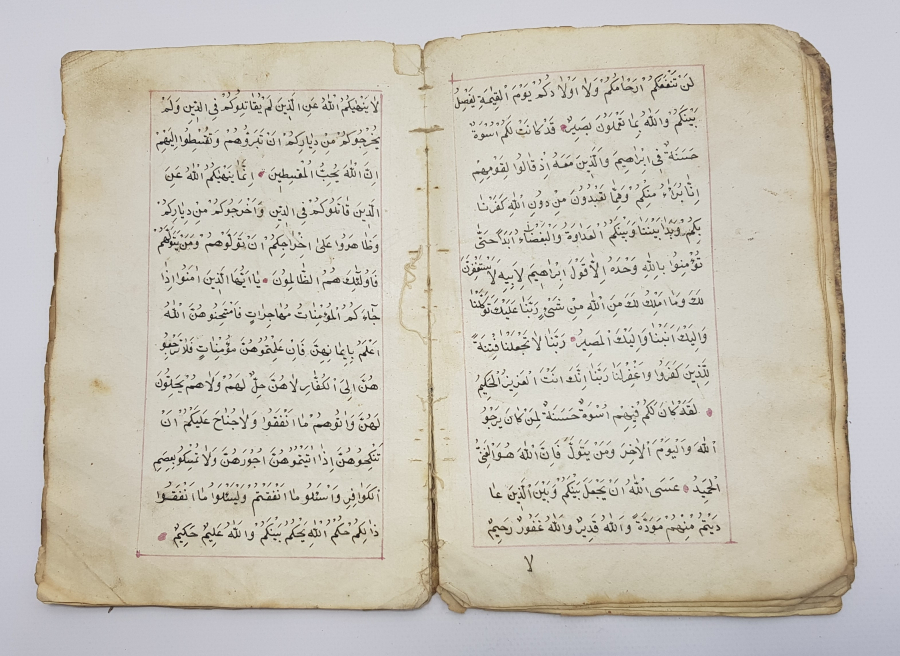 لَنْ تَنْفَعَكُمْ اَرْحَامُكُمْ وَلَا اَوْلَادُكُمْ يَوْمَ الْقِيٰمَةِ يَفْصِلُ
بَيْنَكُمْ وَاللّٰهُ بِمَا تَعْمَلُونَ بَصِيرٌ قَدْ كَانَتْ لَكُمْ اُسْوَةٌ
حَسَنَةٌ فِي اِبْرَاهِيمَ وَالَّذِينَ مَعَهُ اِذْ قَالُوا لِقَوْمِهِمْ
اِنَّا بُرَءٰٓؤُا مِنْكُمْ وَمِمَّا تَعْبُدُونَ مِنْ دُونِ اللّٰهِ كَفَرْنَا
بِكُمْ وَبَدَا بَيْنَنَا وَبَيْنَكُمُ الْعَدَاوَةُ وَالْبَغْضَاءُ اَبَدًا حَتّٰى
تُؤْمِنُوا بِاللّٰهِ وَحْدَهُ اِلَّا قَوْلَ اِبْرٰهِيمَ لِاَبِيهِ لَاَسْتَغْفِرَنَّ
لَكَ وَمَا اَمْلِكُ لَكَ مِنَ اللّٰهِ مِنْ شَيْءٍ رَبَّنَا عَلَيْكَ تَوَكَّلْنَا
وَاِلَيْكَ اَنَبْنَا وَاِلَيْكَ الْمَصِيرُ رَبَّنَا لَا تَجْعَلْنَا فِتْنَةً
لِلَّذِينَ كَفَرُوا وَاغْفِرْ لَنَا رَبَّنَا اِنَّكَ اَنْتَ الْعَزِيزُ الْحَكِيمُ
لَقَدْ كَانَ لَكُمْ فِيهِمْ اُسْوَةٌ حَسَنَةٌ لِمَنْ كَانَ يَرْجُو
اللّٰهَ وَالْيَوْمَ الْاٰخِرَ وَمَنْ يَتَوَلَّ فَاِنَّ اللّٰهَ هُوَ الْغَنِيُّ
الْحَمِيدُ عَسَى اللّٰهُ اَنْ يَجْعَلَ بَيْنَكُمْ وَبَيْنَ الَّذِينَ عَا
دَيْتُمْ مِنْهُمْ مَوَدَّةً وَاللّٰهُ قَدِيرٌ وَاللّٰهُ غَفُورٌ رَحِيمٌ
٧
لَا يَنْهٰيكُمُ اللّٰهُ عَنِ الَّذِينَ لَمْ يُقَاتِلُوكُمْ فِي الدِّينِ وَلَمْ
يُخْرِجُوكُمْ مِنْ دِيَارِكُمْ اَنْ تَبَرُّوهُمْ وَتُقْسِطُوا اِلَيْهِمْ
اِنَّ اللّٰهَ يُحِبُّ الْمُقْسِطِينَ اِنَّمَا يَنْهٰيكُمُ اللّٰهُ عَنِ
الَّذِينَ قَاتَلُوكُمْ فِي الدِّينِ وَاَخْرَجُوكُمْ مِنْ دِيَارِكُمْ
وَظَاهَرُوا عَلٰى اِخْرَاجِكُمْ اَنْ تَوَلَّوْهُمْ وَمَنْ يَتَوَلَّهُمْ
فَاُولٰئِكَ هُمُ الظَّالِمُونَ يَا اَيُّهَا الَّذِينَ اٰمَنُوا اِذَا
جَاءَكُمُ الْمُؤْمِنَاتُ مُهَاجِرَاتٍ فَامْتَحِنُوهُنَّ اللّٰهُ
اَعْلَمُ بِاِيمَانِهِنَّ فَاِنْ عَلِمْتُمُوهُنَّ مُؤْمِنَاتٍ فَلَا تَرْجِعُو
هُنَّ اِلَى الْكُفَّارِ لَا هُنَّ حِلٌّ لَهُمْ وَلَا هُمْ يَحِلُّونَ
لَهُنَّ وَاٰتُوهُمْ مَا اَنْفَقُوا وَلَا جُنَاحَ عَلَيْكُمْ اَنْ
تَنْكِحُوهُنَّ اِذَا اٰتَيْتُمُوهُنَّ اُجُورَهُنَّ وَلَا تُمْسِكُوا بِعِصَمِ
الْكَوَافِرِ وَاسْئَلُوا مَا اَنْفَقْتُمْ وَلْيَسْئَلُوا مَا اَنْفَقُوا
ذٰلِكُمْ حُكْمُ اللّٰهِ يَحْكُمُ بَيْنَكُمْ وَاللّٰهُ عَلِيمٌ حَكِيمٌ